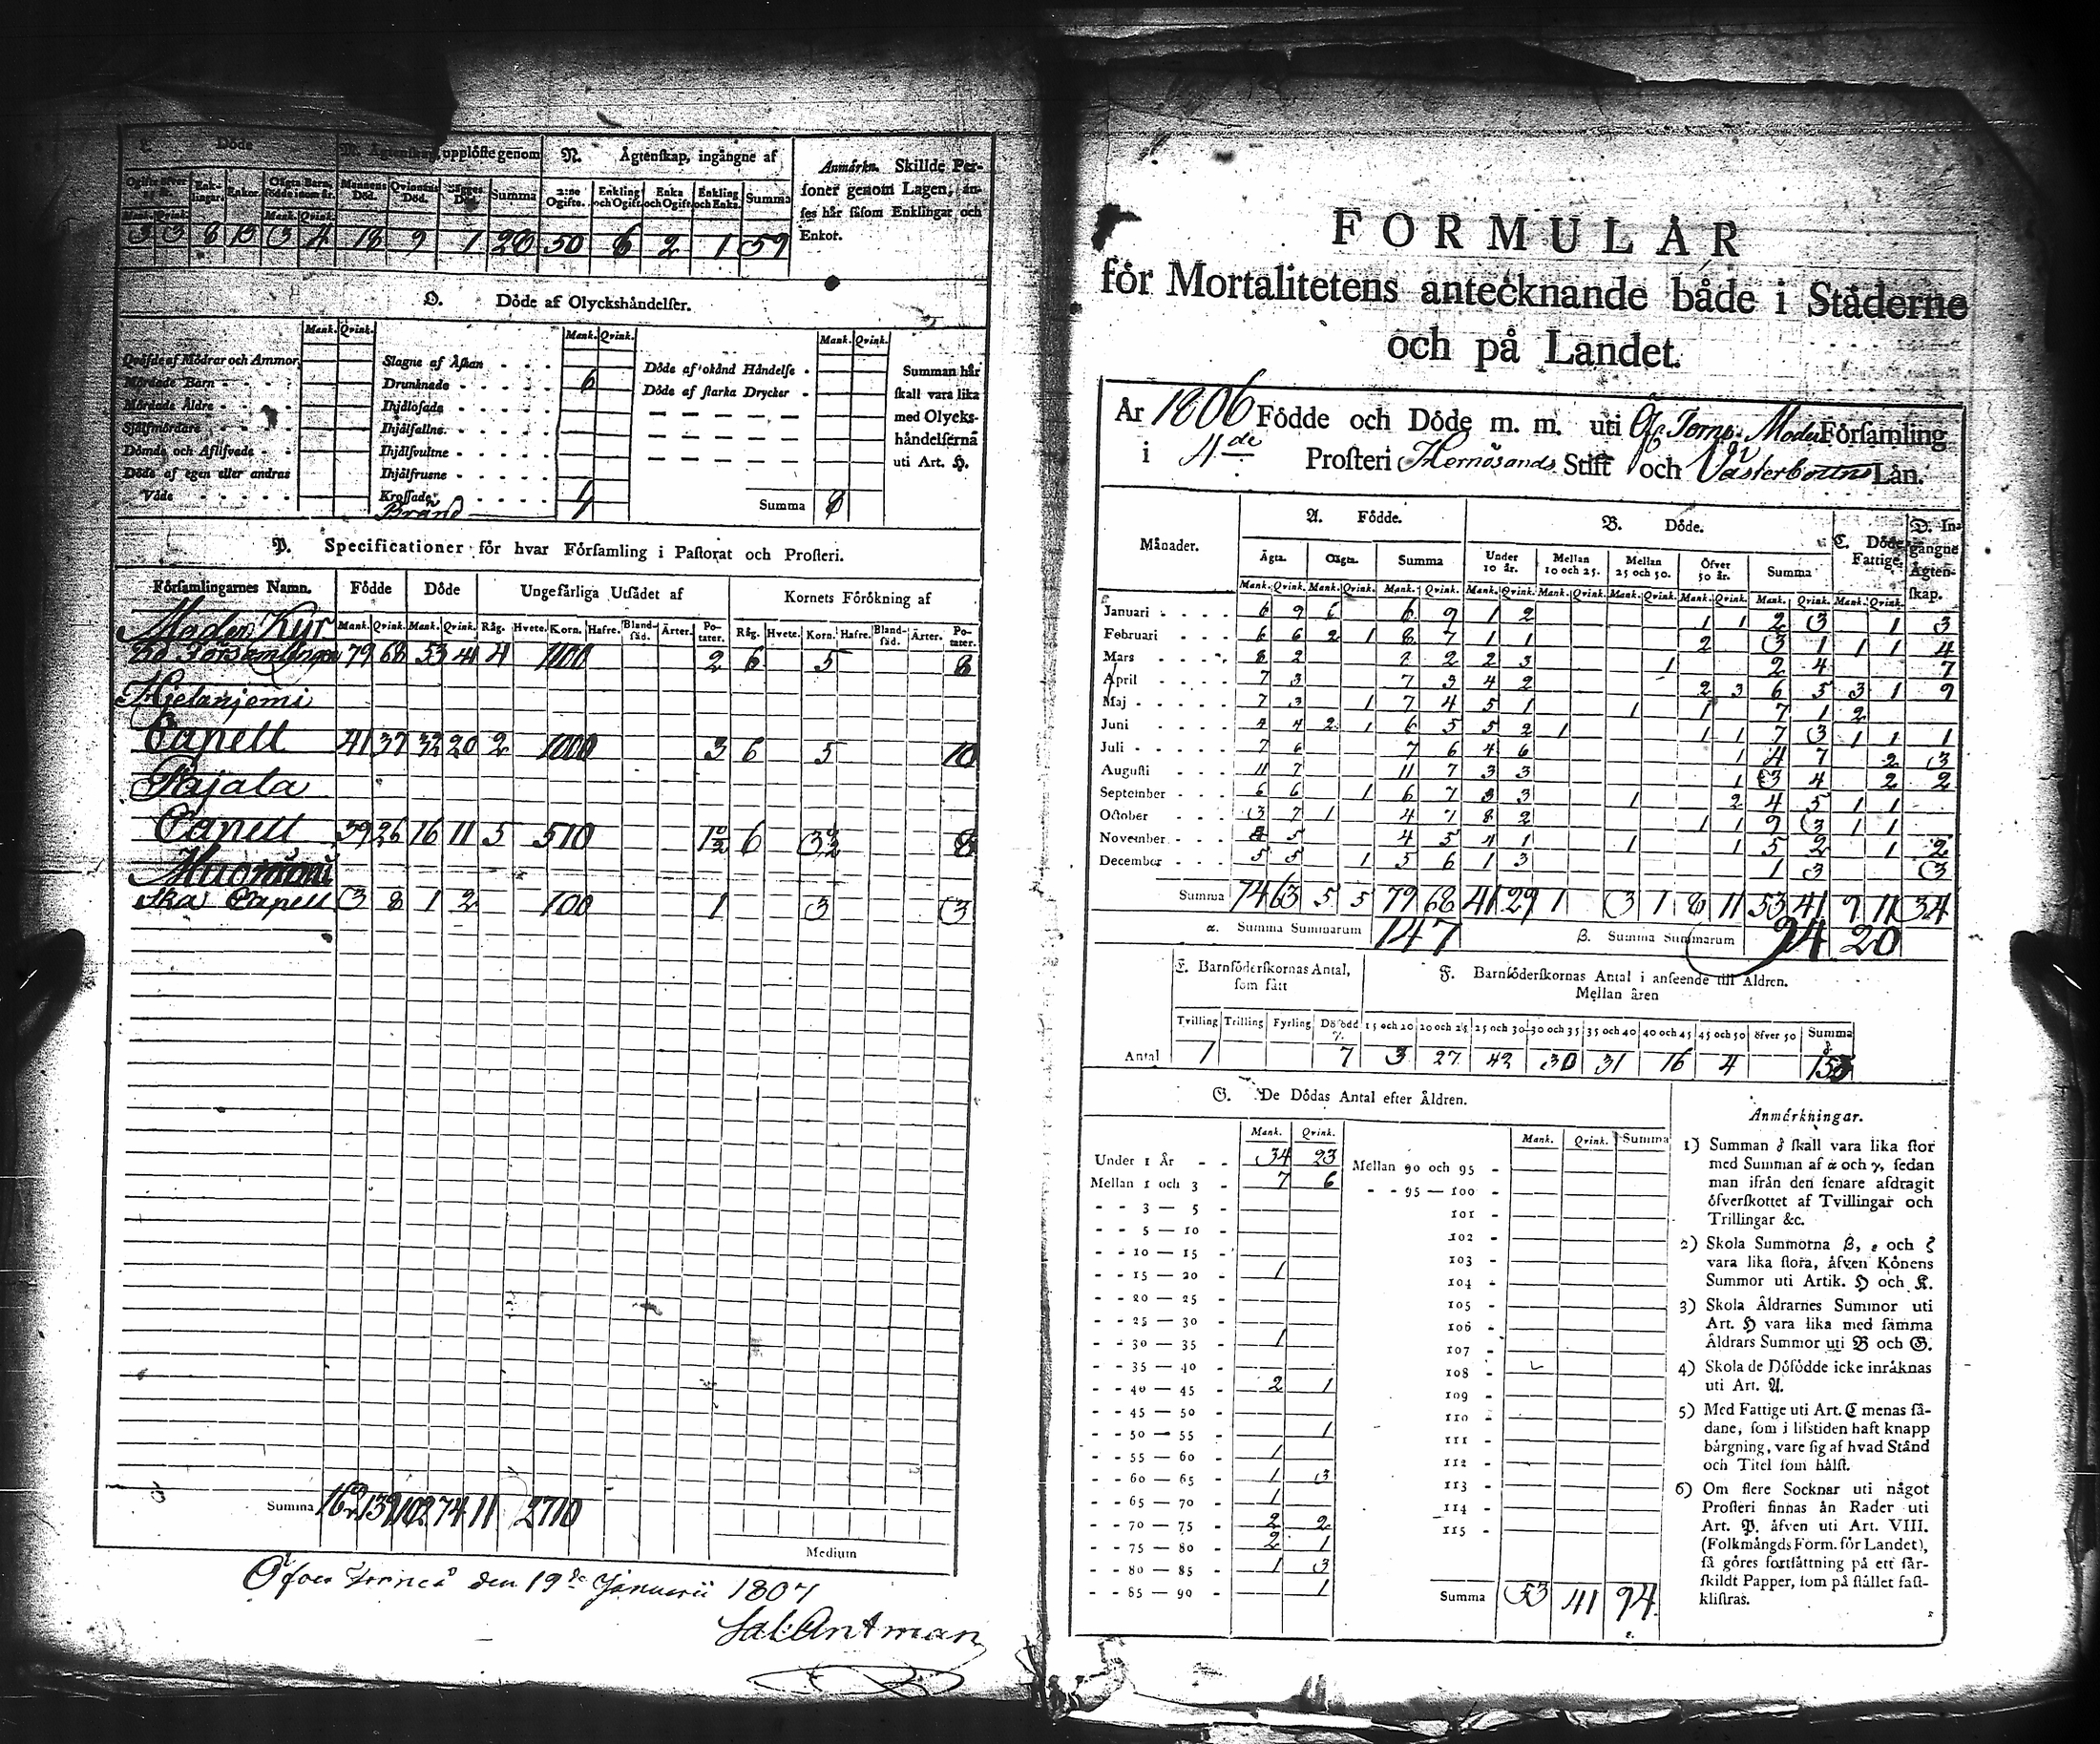 L. Döde
M. Ägtenskap, upplöste genom
N. Ägtenskap, ingångne af
Anmärkn. Skillde Per-
soner genom Lagen, an-
ses här såsom Enklingar och
Enkor.
Enk-
lingar. Enkor. Oägta Barn,
födde inom år. Mannens
Död. Qvinnans
Död. Summa 2:ne
Ogifte. Enkling
och Ogift. Enka
och Ogift. Enkling
och Enka. Summa
Mank. Qvink. Mank. Qvink.
3 3 8 13 3 4 18 9 1 28 50 6 2 1 59
O. Döde af Olyckshändelser.
Mank. Qvink. Mank. Qvink. Mank. Qvink.
Qväfde af Mödrar och Ammor.
Mördade Barn
Mördade Äldre
Sjelfmördare
Dömde och Aflifvade
Döde af egen eller andras
Våda
Slagne af Åskan
Drunknade 6
Ihjälosade
Ihjälfallne
Ihjälsvultne
Ihjälfrusne
Krossade
Bränd
Döde af okänd Händelse
Döde af starka Drycker
Summa
Summan här
skall vara lika
med Olycks-
händelserna
uti Art. H.
P. Specificationer för hvar Församling i Pastorat och Prosteri.
Församlingarnes Namn. Födde Döde Ungefärliga Utsädet af Kornets Förökning af
Mank. Qvink. Mank. Qvink. Råg. Hvete. Korn. Hafre. Bland-
säd. Ärter. Po-
tater. Råg. Hvete. Korn. Hafre. Bland-
säd. Ärter. Po-
tater.
Moder Kyr
ko Församlingen 79 68 53 41 4 1100 2 6 5 8
Hjetanjemi
Capell 41 37 32 20 2 1000 3 6 5 10
Pajala
Capell 39 26 16 11 5 510 6 8
Muonioni
ska Capell 3 8 1 2 100 1 3 3
Summa 162 139 102 74 11 2710
Medium
Öfver Torneå den 19de Januarii 1807
Sal. Antman
FORMULÄR
för Mortalitetens antecknande både i Städerne
och på Landet.
År 1806 Födde och Döde m. m. uti Öf. Torne Moder Församling
i 4de Prosteri Hernösands Stift och Västerbottns Län.
Månader. A. Födde. B. Döde. C. Döde
Fattige. D. In-
gångne
Ägten-
skap.
Ägta. Oägta. Summa Under
10 år. Mellan
10 och 25. Mellan
25 och 50. Öfver
50 år. Summa
Mank. Qvink. Mank. Qvink. Mank. Qvink. Mank. Qvink. Mank. Qvink. Mank. Qvink. Mank. Qvink. Mank. Qvink. Mank. Qvink.
Januari 6 9 6 9 1 2 1 1 2 3 1 3
Februari 6 6 2 1 8 7 1 1 2 3 1 1 1 4
Mars 8 2 8 2 2 3 1 2 4 7
April 7 3 7 3 4 2 2 3 6 5 3 1 9
Maj 7 3 1 7 4 5 1 1 1 7 1 2
Juni 4 4 2 1 6 5 5 2 1 1 1 7 3 1 1 1
Juli 7 6 7 6 4 6 1 4 7 2 3
Augusti 11 7 11 7 3 3 1 3 4 2 2
September 6 6 1 6 7 3 3 1 2 4 5 1 1
October 3 7 1 4 7 8 2 1 1 9 3 1 1
November 4 5 4 5 4 1 1 1 5 2 1 2
December 5 5 1 5 6 1 3 1 3 3
Summa 74 63 5 5 79 68 41 29 1 3 1 8 11 53 41 9 11 34
α. Summa Summarum 147 β. Summa Summarum 94 20
E. Barnföderskornas Antal,
som fått
F. Barnföderskornas Antal i anseende till Åldren.
Mellan åren
Tvilling Trilling Fyrling Dödfödd 15 och 20 20 och 25 25 och 30 30 och 35 35 och 40 40 och 45 45 och 50 öfver 50 Summa
Antal 1 7 3 27 42 30 31 16 4 153
G. De Dödas Antal efter Åldren.
Mank. Qvink. Mank. Qvink. Summa
Under 1 År 34 23
Mellan 1 och 3 7 6
3 — 5
5 — 10
10 — 15
15 — 20 1
20 — 25
25 — 30
30 — 35 1
35 — 40
40 — 45 2 1
45 — 50
50 — 55 1
55 — 60 1
60 — 65 1 3
65 — 70 1
70 — 75 2 2
75 — 80 2 1
80 — 85 1 3
85 — 90 1
Mellan 90 och 95
95 — 100
101
102
103
104
105
106
107
108
109
110
111
112
113
114
115
Summa 53 41 94
Anmärkningar.
1) Summan δ skall vara lika stor
med Summan af α och γ, sedan
man ifrån den senare afdragit
öfverskottet af Tvillingar och
Trillingar &c.
2) Skola Summorna β, ε och ζ
vara lika stora, äfven Könens
Summor uti Artik. H och K.
3) Skola Åldrarnes Summor uti
Art. H vara lika med samma
Åldrars Summor uti B och G.
4) Skola de Dödfödde icke inräknas
uti Art. A.
5) Med Fattige uti Art. C menas så-
dane, som i lifstiden haft knapp
bärgning, vare sig af hvad Stånd
och Titel som hälst.
6) Om flere Socknar uti något
Prosteri finnas än Rader uti
Art. P. äfven uti Art. VIII.
(Folkmängds Form. för Landet),
så göres fortsättning på ett sär-
skildt Papper, som på stället fast-
klistras.